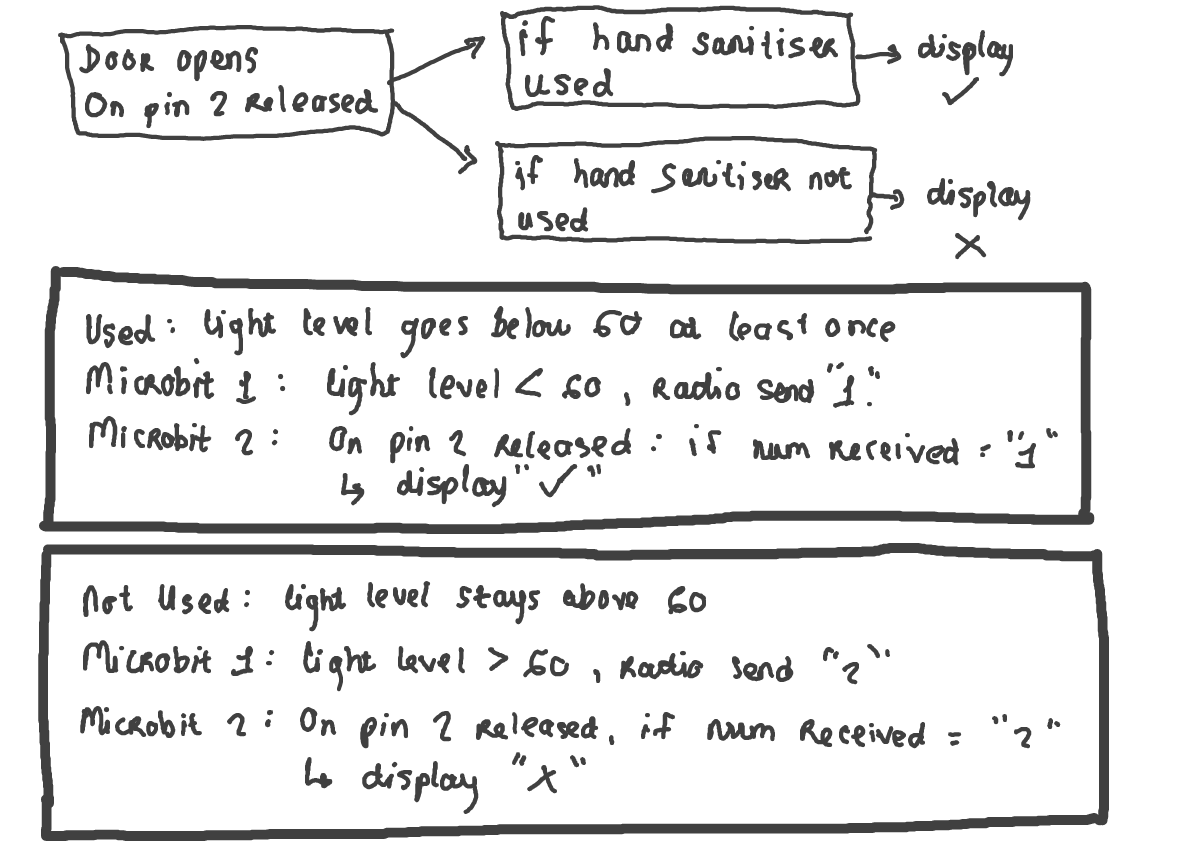 Door opens
On pin 2 Released
if hand sanitiser
used
display
✓
if hand sanitiser not
used
display
X
Used: light level goes below 60 at least once
Microbit 1: light level < 60, Radio send "1"
Microbit 2: On pin 2 Released: if num Received = "1"
↳ display "✓"
Not Used: light level stays above 60
Microbit 1: light level > 60, Radio send "2"
Microbit 2: On pin 2 Released, if num Received = "2"
↳ display "X"